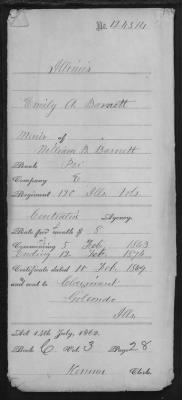 No. 124514
Illinois
Emily A. Barnett
Minor of
William B. Barnett
Rank Pri
Company E
Regiment 120 Ills Vols
Centralia Agency.
Rate per month $ 8
Commencing 5 Feby 1863
Ending 12 Feby 1874
Certificate dated 11 Feby 1869
and sent to Claimant
Golconda
Ills
Act 14th July, 1862.
Book C Vol. 3 Page 28
Clerk.